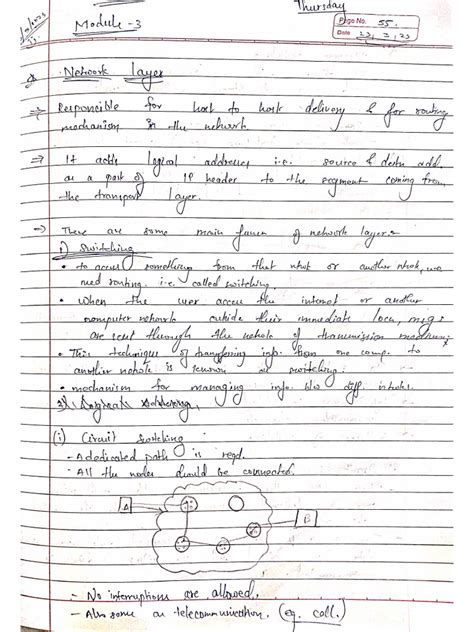 Thursday
Module - 3
Page No. 55
Date 23, 2, 23
Network layer
⇒ Responsible for host to host delivery & for routing
mechanism in the network.
⇒ It adds logical addresses, i.e. source & destn add.
as a part of IP header to the segment coming from
the transport layer.
⇒ There are some main funcn of network layer:-
1) Switching
• to access something from that ntwk or another ntwk, we
need routing. i.e. called switching.
• When the user access the internet or another
computer network outside their immediate locn, msgs
are sent through the netwk of transmission medium
• This technique of transferring info. from one comp. to
another netwk is known as switching.
• mechanism for managing info. b/w diff. ntwks.
2) Logical Addressing,
(i) Circuit switching
- A dedicated path is reqd.
- All the nodes should be connected.
A
B
- No interruptions are allowed.
- Also same as telecommunication. (eg. call.)